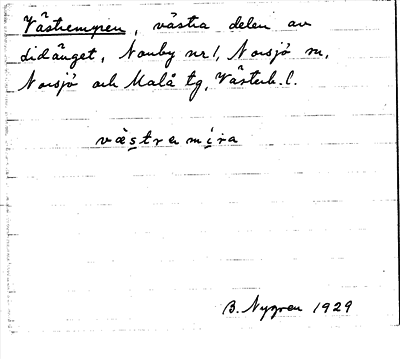 Västremyren, västra delen av
didänget, Norrby nr 1, Norsjö sn,
Norsjö och Malå tg, Västerb. l.
væstremira
B. Nygren 1929